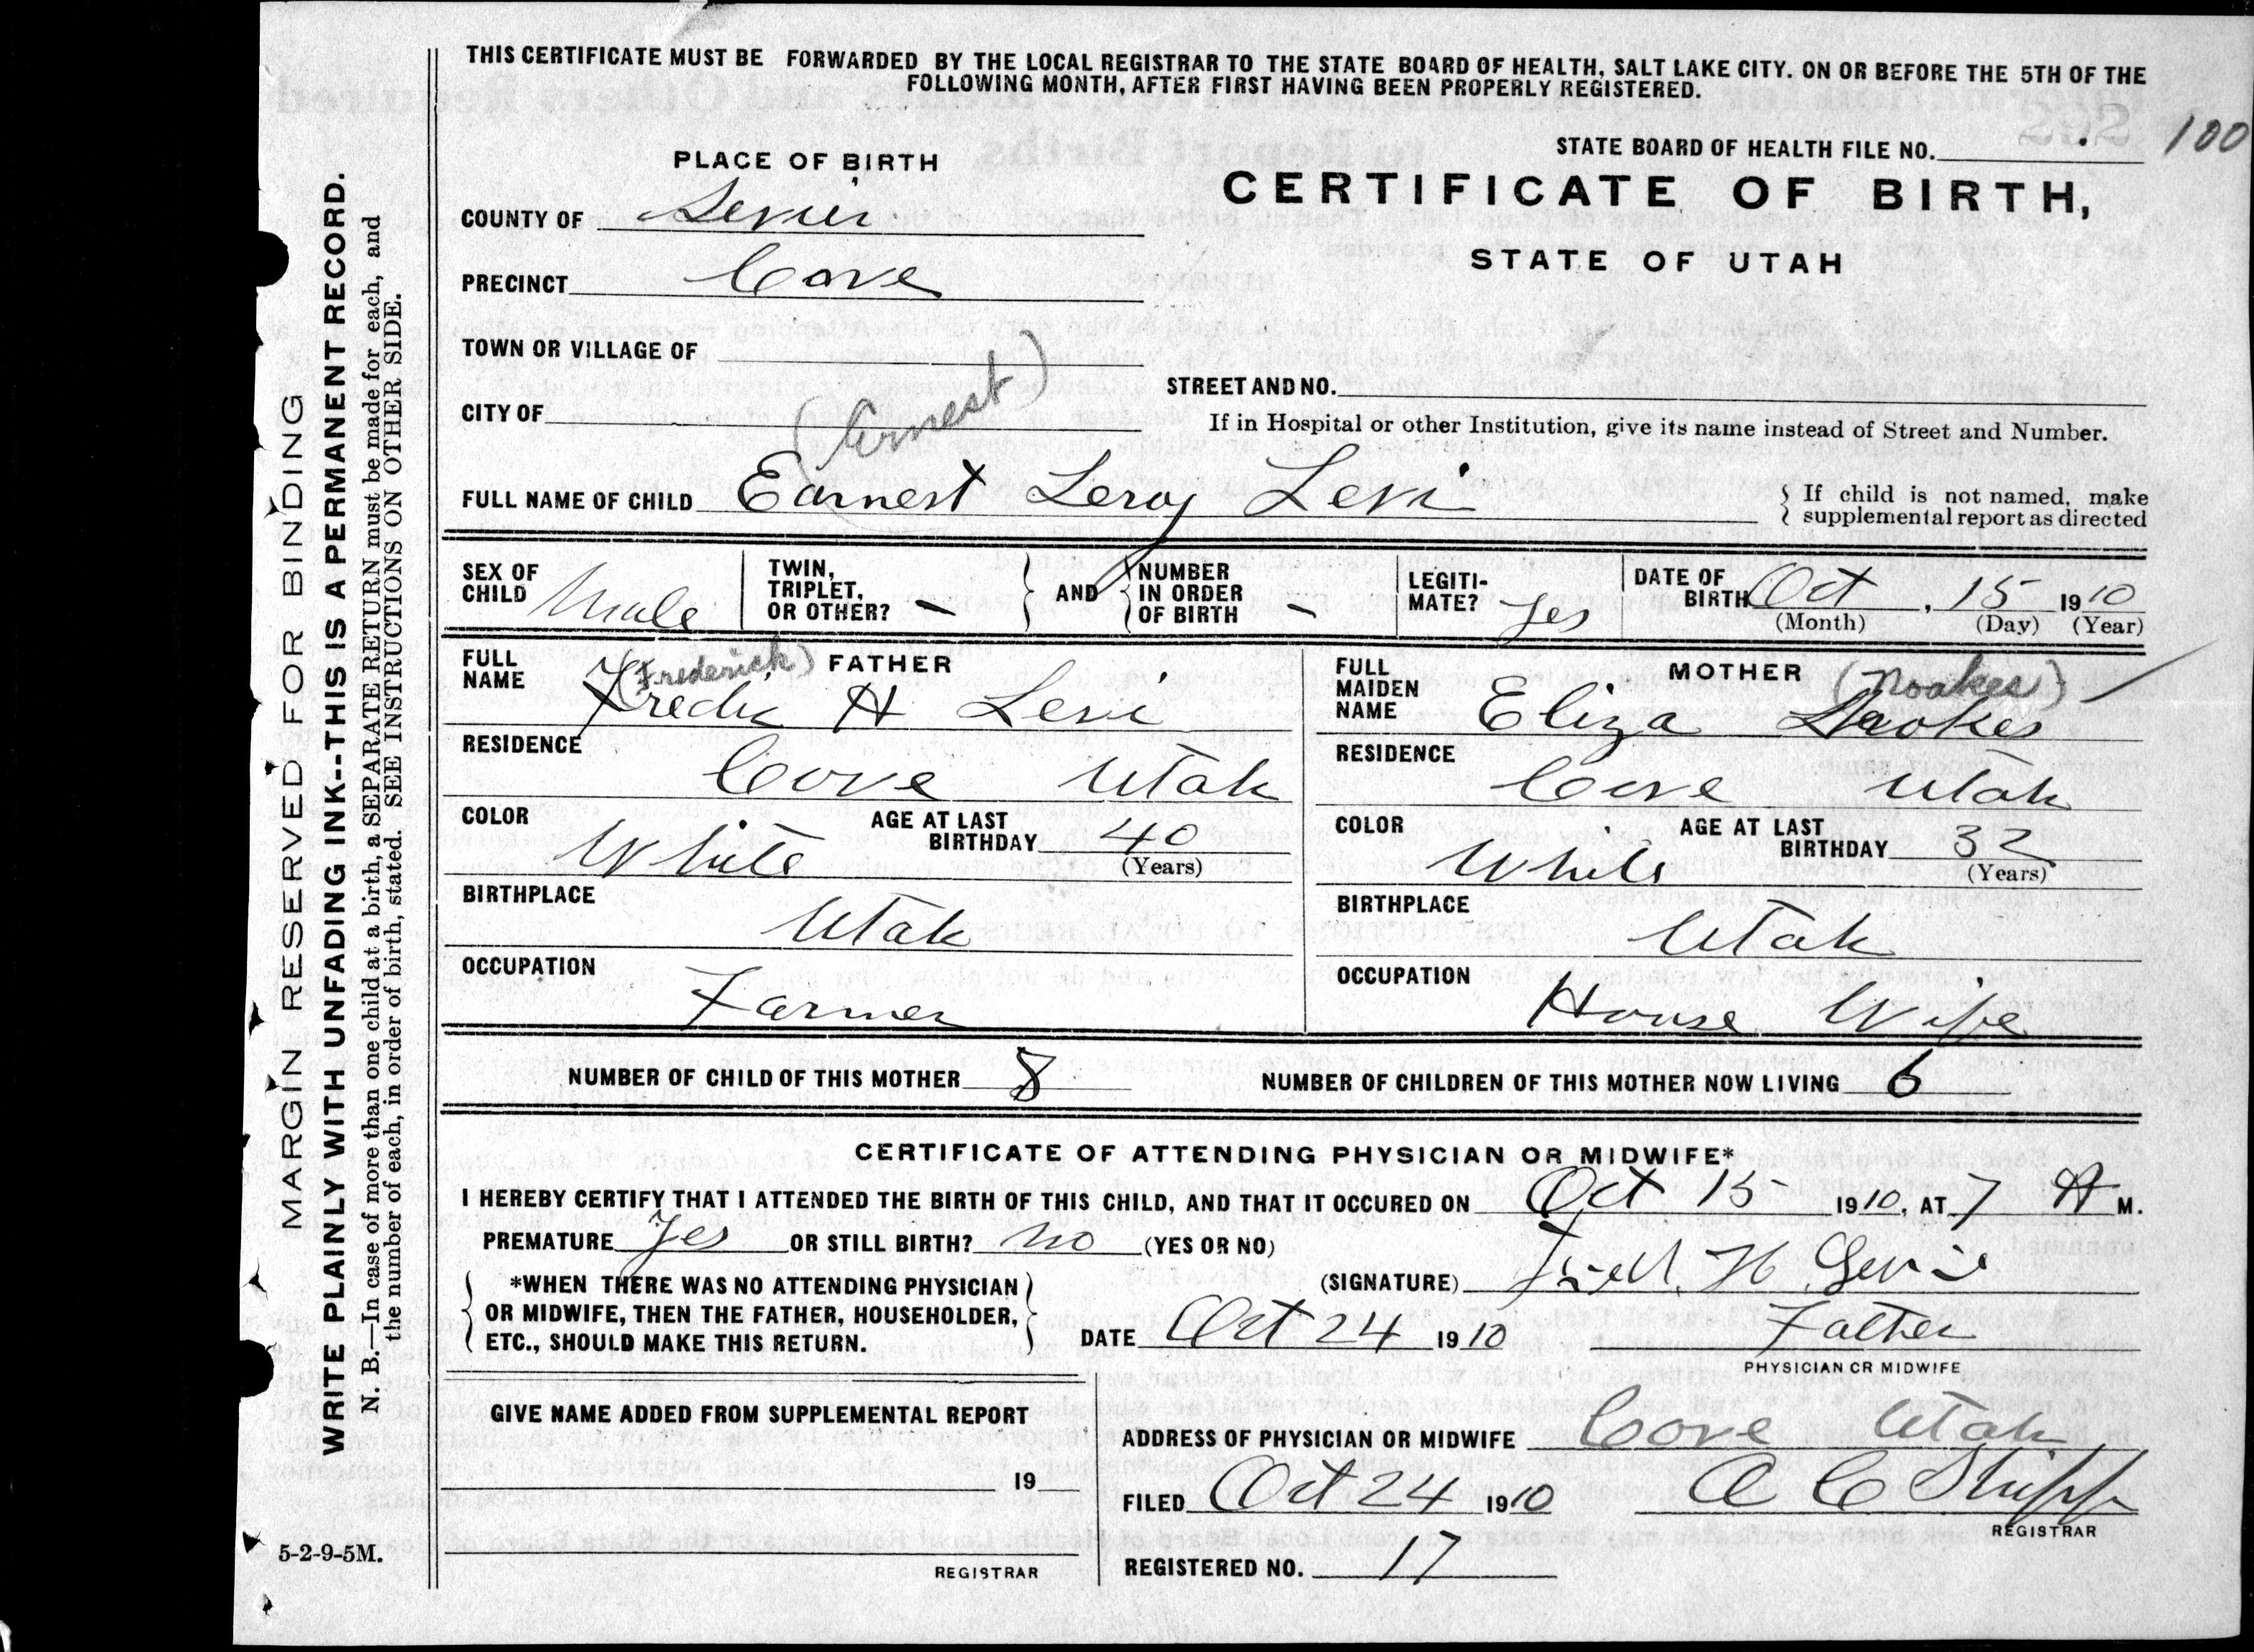 THIS CERTIFICATE MUST BE FORWARDED BY THE LOCAL REGISTRAR TO THE STATE BOARD OF HEALTH, SALT LAKE CITY. ON OR BEFORE THE 5TH OF THE
FOLLOWING MONTH, AFTER FIRST HAVING BEEN PROPERLY REGISTERED.
STATE BOARD OF HEALTH FILE NO. 100
PLACE OF BIRTH
CERTIFICATE OF BIRTH,
STATE OF UTAH
COUNTY OF Sevier
PRECINCT Cove
TOWN OR VILLAGE OF
STREET AND NO.
CITY OF
If in Hospital or other Institution, give its name instead of Street and Number.
(Ernest)
FULL NAME OF CHILD Earnest Leroy Levi
If child is not named, make
supplemental report as directed
SEX OF CHILD Male
TWIN, TRIPLET, OR OTHER? –
AND
NUMBER IN ORDER OF BIRTH –
LEGITI-MATE? Yes
DATE OF BIRTH Oct, 15 1910
(Month) (Day) (Year)
FATHER
(Frederick)
FULL NAME Fredic H Levi
RESIDENCE Cove Utah
COLOR White
AGE AT LAST BIRTHDAY 40
(Years)
BIRTHPLACE Utah
OCCUPATION Farmer
MOTHER
(Noakes)
FULL MAIDEN NAME Eliza
RESIDENCE Cove Utah
COLOR White
AGE AT LAST BIRTHDAY 32
(Years)
BIRTHPLACE Utah
OCCUPATION House Wife
NUMBER OF CHILD OF THIS MOTHER 8
NUMBER OF CHILDREN OF THIS MOTHER NOW LIVING 6
CERTIFICATE OF ATTENDING PHYSICIAN OR MIDWIFE*
I HEREBY CERTIFY THAT I ATTENDED THE BIRTH OF THIS CHILD, AND THAT IT OCCURED ON Oct 15 1910, AT 7 A M.
PREMATURE Yes OR STILL BIRTH? no (YES OR NO)
*WHEN THERE WAS NO ATTENDING PHYSICIAN
OR MIDWIFE, THEN THE FATHER, HOUSEHOLDER,
ETC., SHOULD MAKE THIS RETURN.
(SIGNATURE) Fred. H Levi
DATE Oct 24 1910
Father
PHYSICIAN OR MIDWIFE
GIVE NAME ADDED FROM SUPPLEMENTAL REPORT
19
REGISTRAR
ADDRESS OF PHYSICIAN OR MIDWIFE Cove Utah
FILED Oct 24 1910
A C Shipp
REGISTRAR
REGISTERED NO. 17
MARGIN RESERVED FOR BINDING
WRITE PLAINLY WITH UNFADING INK--THIS IS A PERMANENT RECORD.
N. B.—In case of more than one child at a birth, a SEPARATE RETURN must be made for each, and
the number of each, in order of birth, stated. SEE INSTRUCTIONS ON OTHER SIDE.
5-2-9-5M.